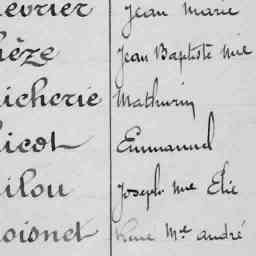 evrier Jean Marie
èze Jean Baptiste Mie
icherie Mathurin
icot Emmanuel
ilou Joseph Mie Elie
oisnet René Mie André